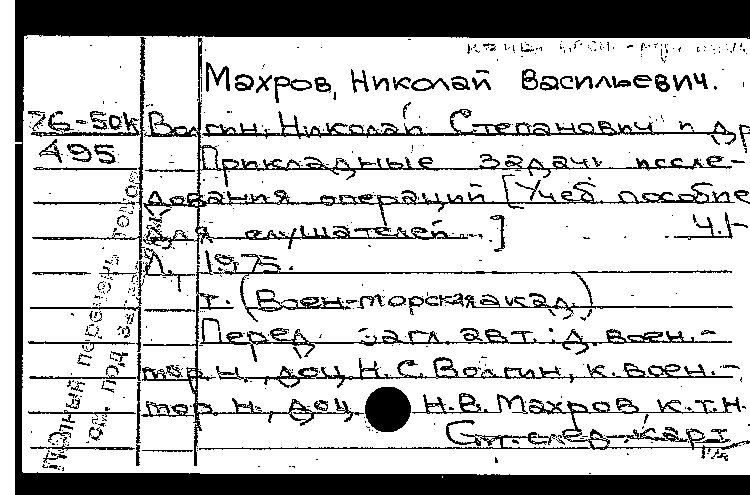 Махров, Николай Васильевич.
76-50к Волгин, Николай Степанович и др
А95 Прикладные задачи иссле-
дования операций [Учеб пособие
для слушателей...] Ч.1-
Л., 1975.
т. (Воен-морская акад.)
Перед загл. авт.: д. воен.-
мор. н., доц. Н.С. Волгин, к. воен.-
мор. н., доц. Н.В. Махров, к.т.н.
См. след. карт
Полный перечень
см. под заглавием